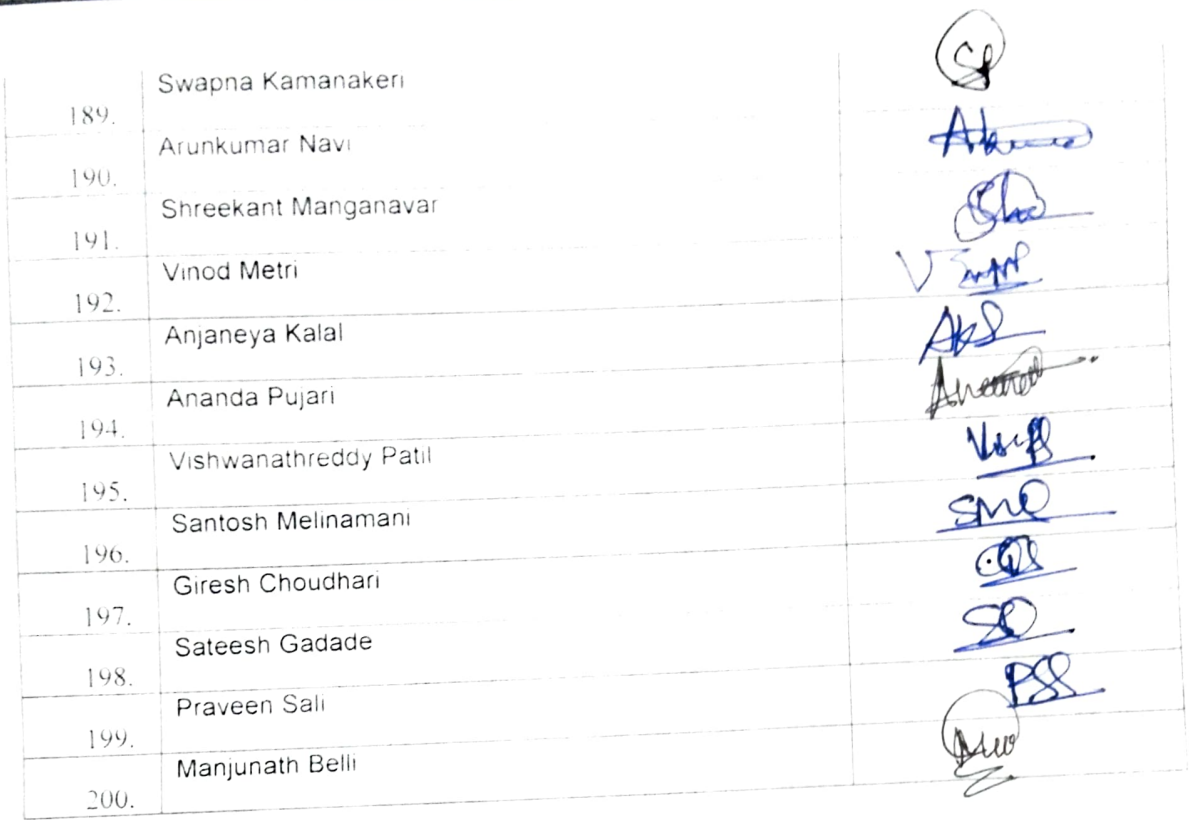 189. Swapna Kamanakeri
190. Arunkumar Navi
191. Shreekant Manganavar
192. Vinod Metri
193. Anjaneya Kalal
194. Ananda Pujari
195. Vishwanathreddy Patil
196. Santosh Melinamani
197. Giresh Choudhari
198. Sateesh Gadade
199. Praveen Sali PSS
200. Manjunath Belli